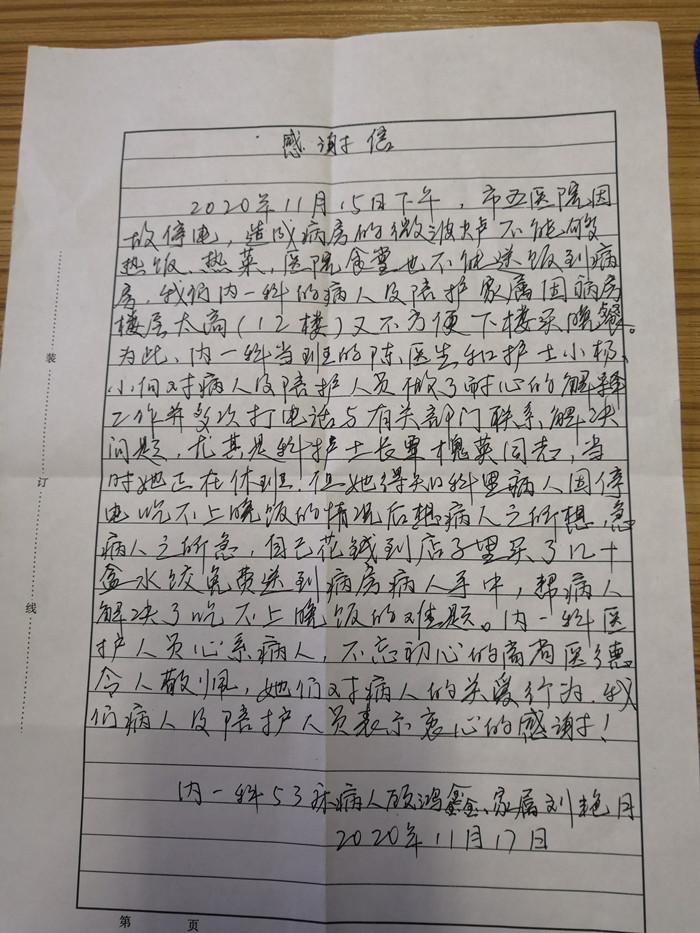 感谢信
2020年11月15日下午，市五医院因
故停电，造成病房的微波炉不能做
热饭、热菜，医院食堂也不能送饭到病
房，我们内一科的病人及陪护家属因病房
楼层太高(12楼)又不方便下楼买晚餐。
为此、内一科当班的陈医生和护士小杨、
小向对病人及陪护人员做了耐心的解释
工作并多次打电话与有关部门联系解决
问题，尤其是科护士长覃槐英同志，当
时她正在休班，但她得知科里病人因停
电吃不上晚饭的情况后想病人之所想，急
病人之所急，自己花钱到店子里买了几十
盒水饺免费送到病房病人手中，帮病人
解决了吃不上晚饭的难题。内一科医
护人员心系病人，不忘初心的高尚医德
令人敬佩，她们对病人的关爱行为，我
们病人及陪护人员表示衷心的感谢！
内一科53床病人顾鸿鑫、家属刘艳月
2020年11月17日
装
订
线
第 页